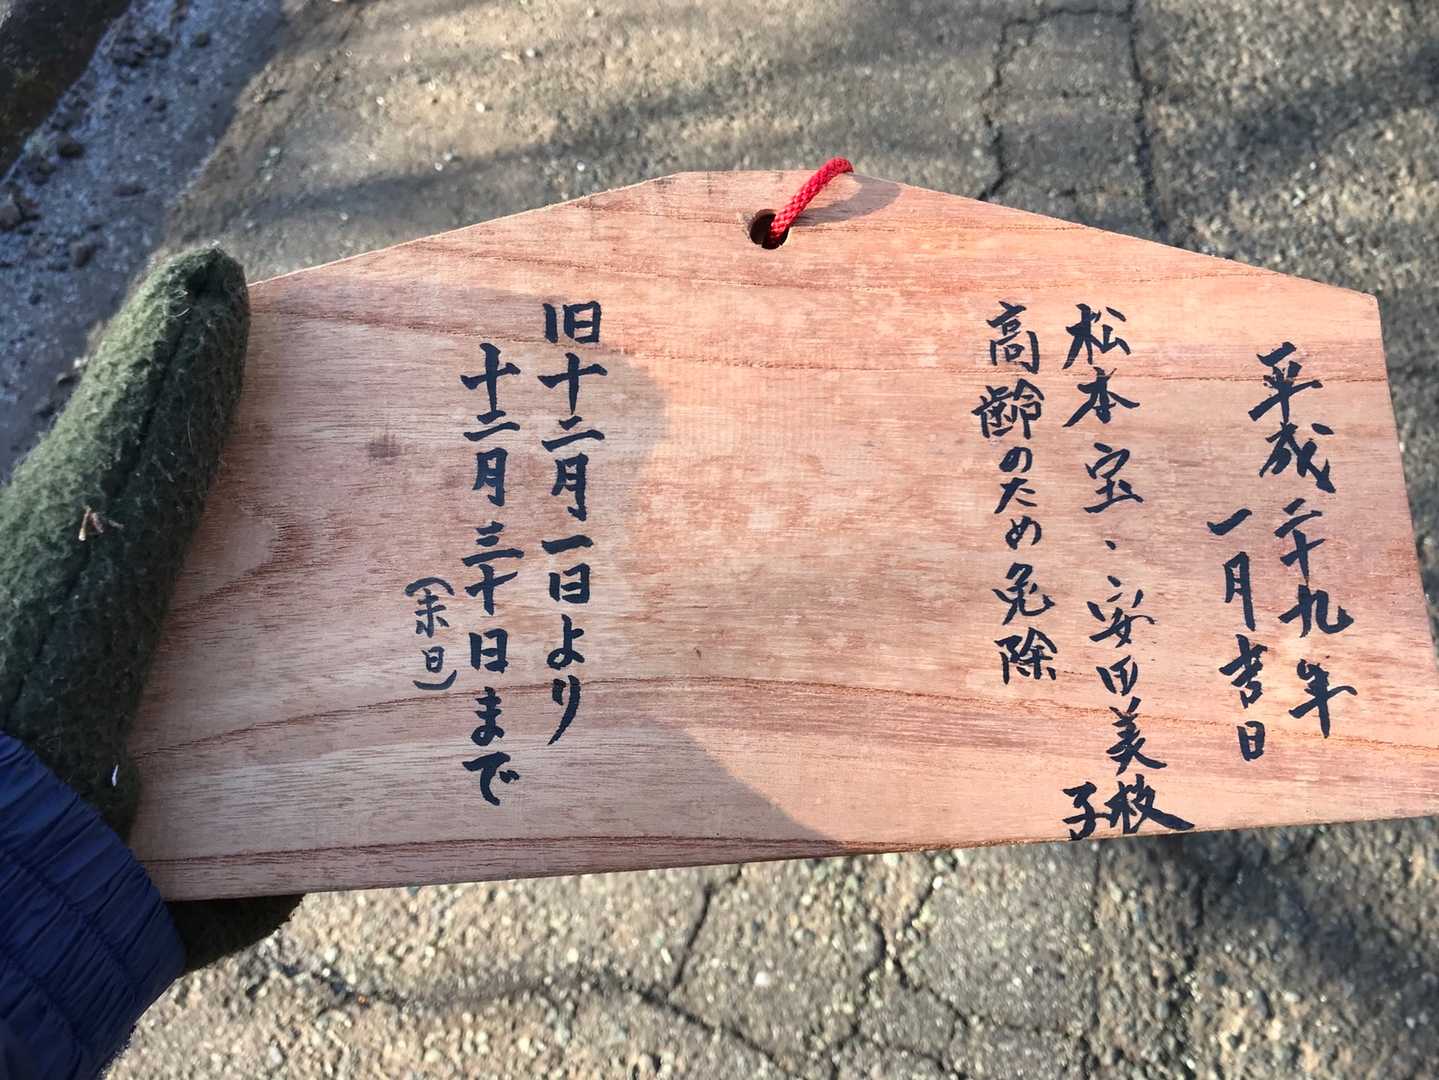 平成二十九年
一月吉日
松本宝、安田美枝子
高齢のため免除
旧十二月一日より
十二月三十日まで
(末日)